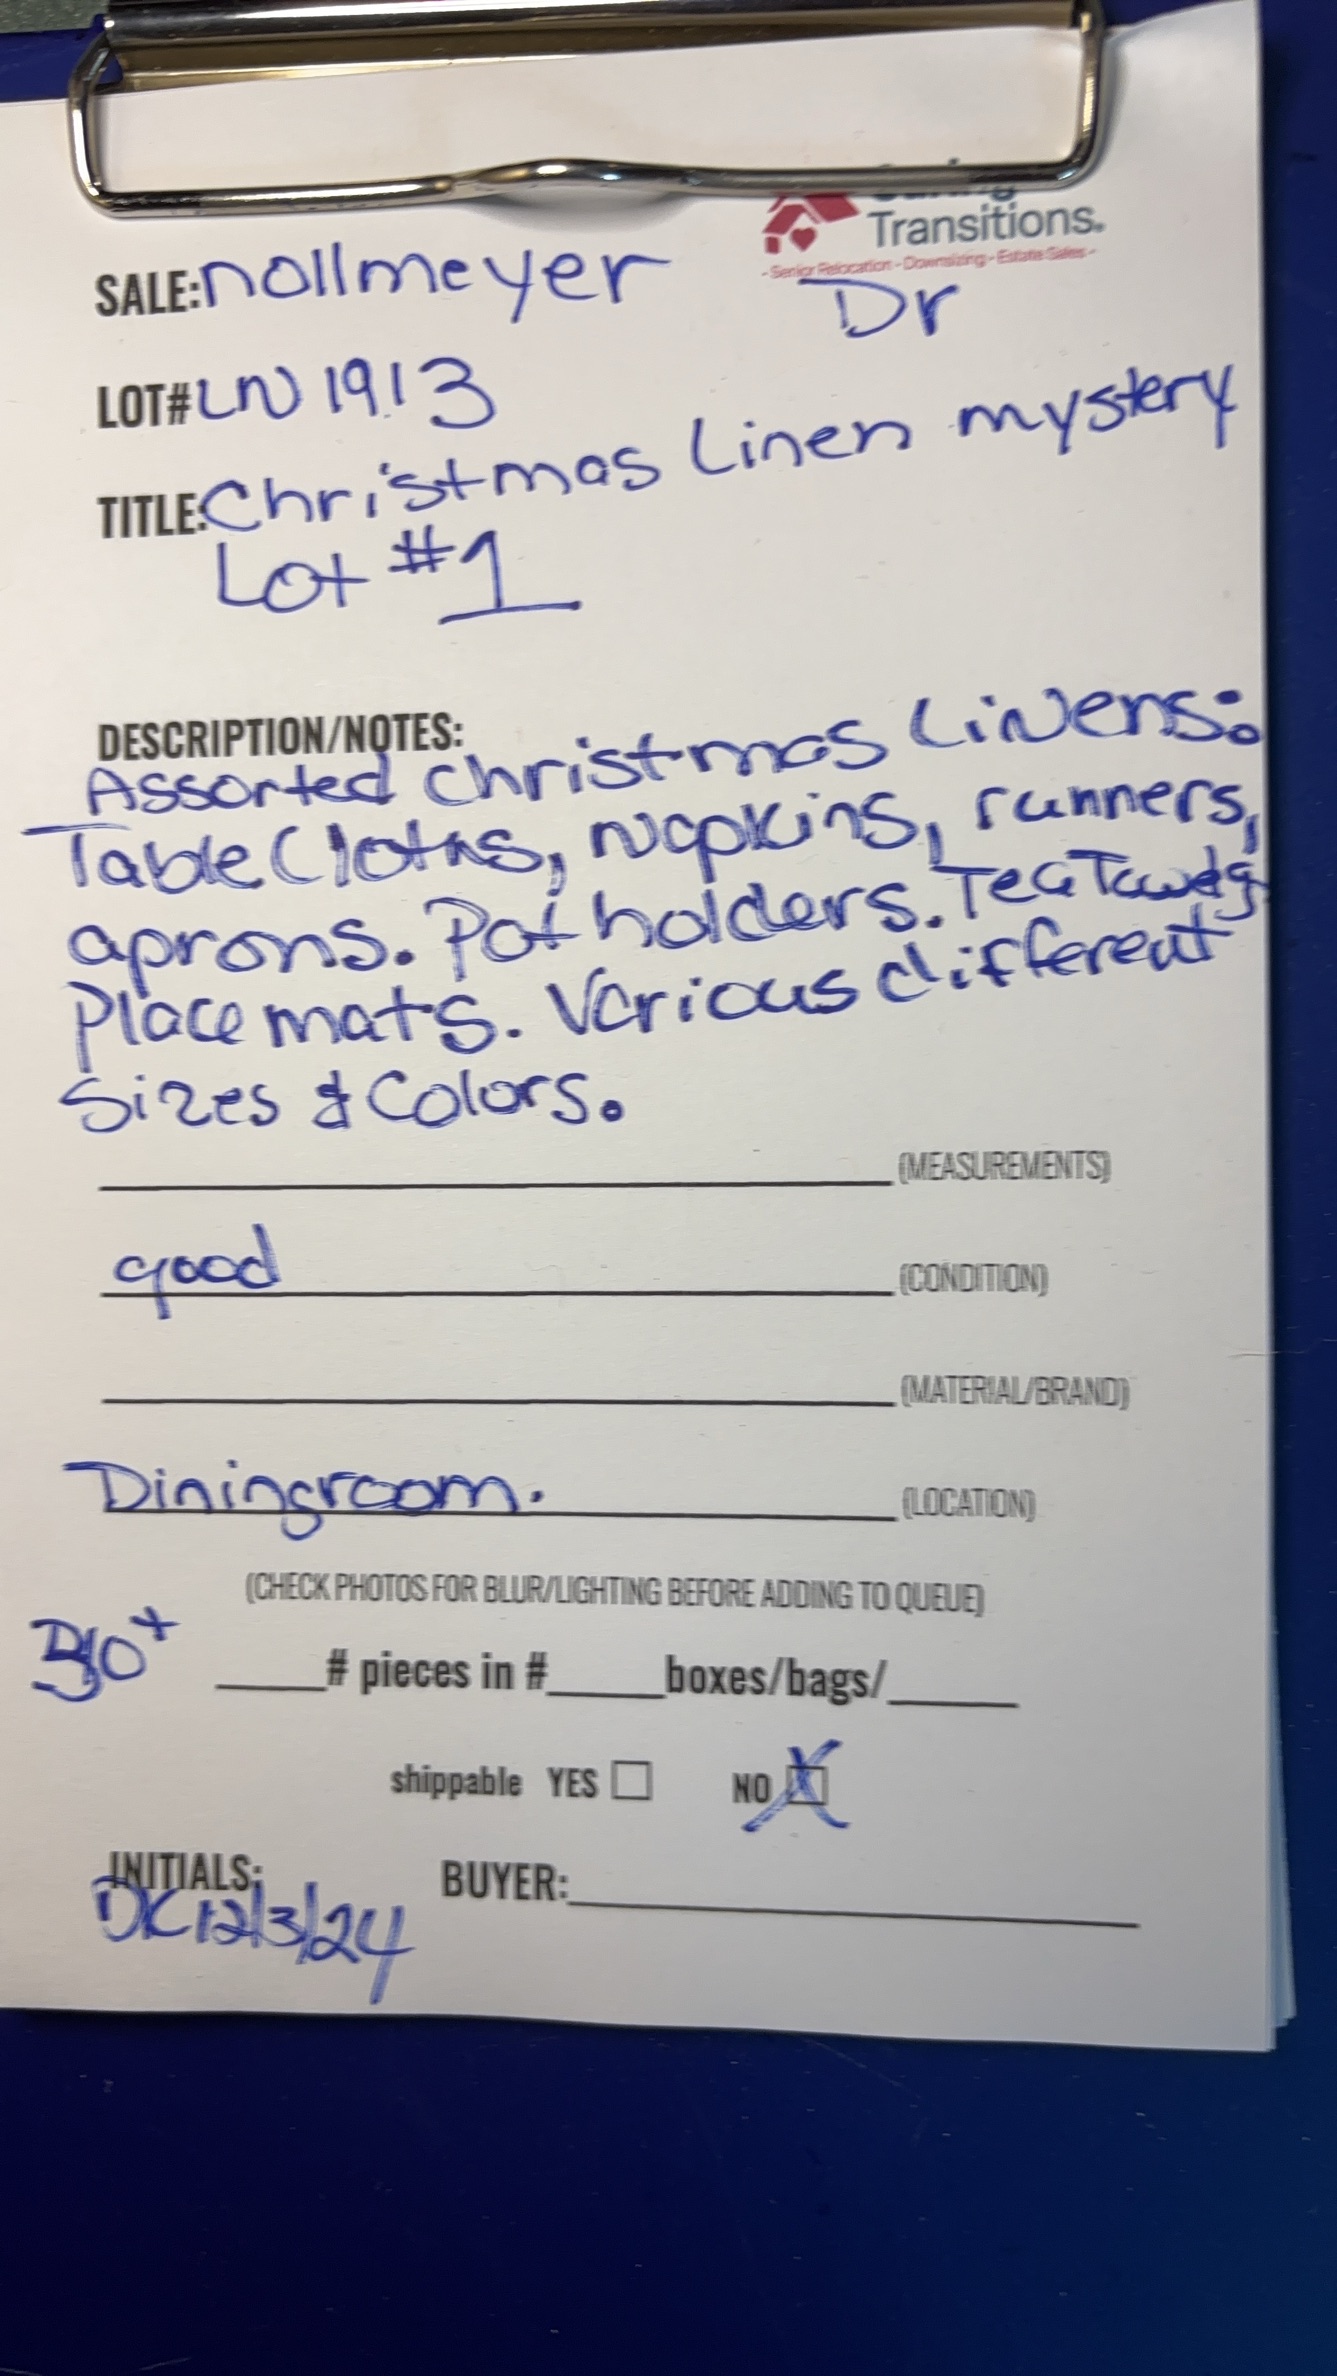 Transitions.
- Senior Relocation - Downsizing - Estate Sales -
SALE: nollmeyer Dr
LOT# LN 1913
TITLE: Christmas Linen mystery
Lot #1
DESCRIPTION/NOTES:
Assorted Christmas Linens:
Table Cloths, Napkins, runners,
aprons. Pot holders. Tea Towels
Place mats. Various different
Sizes & Colors.
(MEASUREMENTS)
good (CONDITION)
(MATERIAL/BRAND)
Diningroom. (LOCATION)
(CHECK PHOTOS FOR BLUR/LIGHTING BEFORE ADDING TO QUEUE)
# pieces in # boxes/bags/
shippable YES ☐ NO ☒
INITIALS: BUYER:
DC 12/3/24